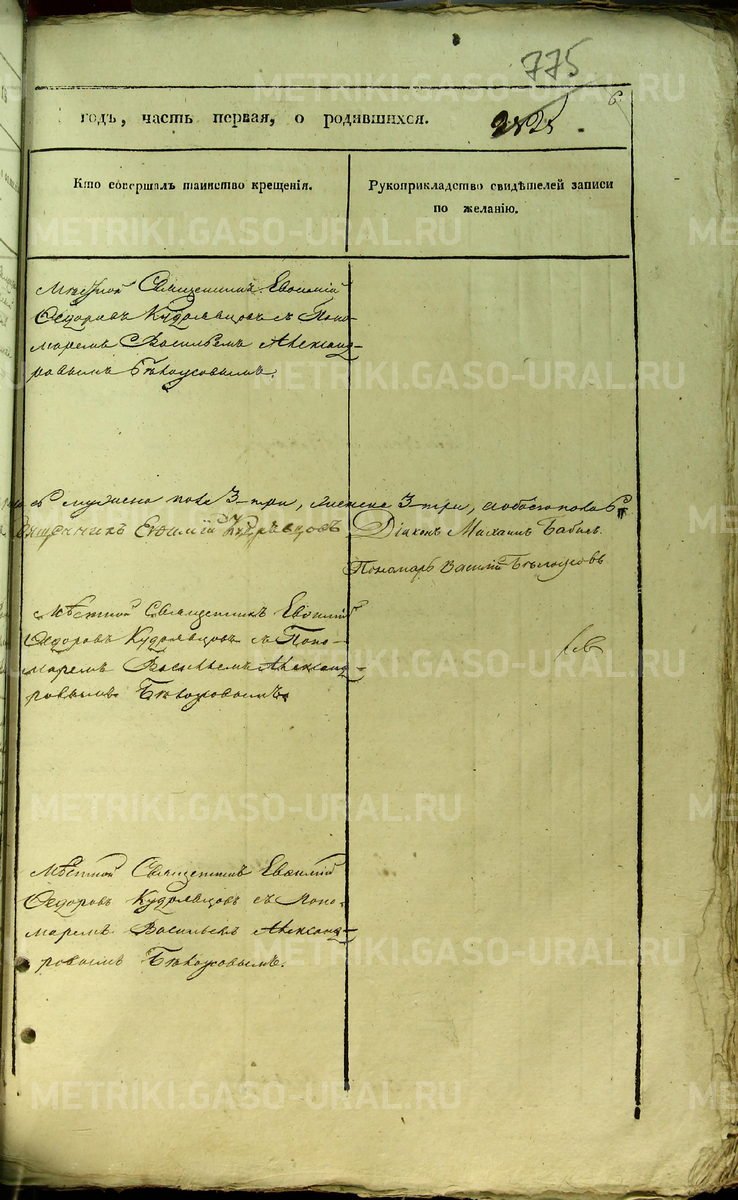 775
6
годъ, часть первая, о родившихся.
Кто совершалъ таинство крещенія.
Рукоприкладство свидѣтелей записи
по желанію.
Мѣстной Священникъ Евѳимій
Ѳедоровъ Кудрявцовъ съ Поно-
маремъ Васильемъ Александ-
ровымъ Бѣлоусовымъ.
мужеска пола 3-три, женска 3-три, а обоего пола 6
Священникъ Еѵѳимій Кудрявцовъ Діаконъ Михаилъ
Пономарь Василій Бѣлоусовъ
Мѣстной Священникъ Евѳимій
Ѳедоровъ Кудрявцовъ съ Поно-
маремъ Васильемъ Александ-
ровымъ Бѣлоусовымъ.
Мѣстной Священникъ Евѳимій
Ѳедоровъ Кудрявцовъ съ Поно-
маремъ Васильемъ Александ-
ровымъ Бѣлоусовымъ.
METRIKI.GASO-URAL.RU